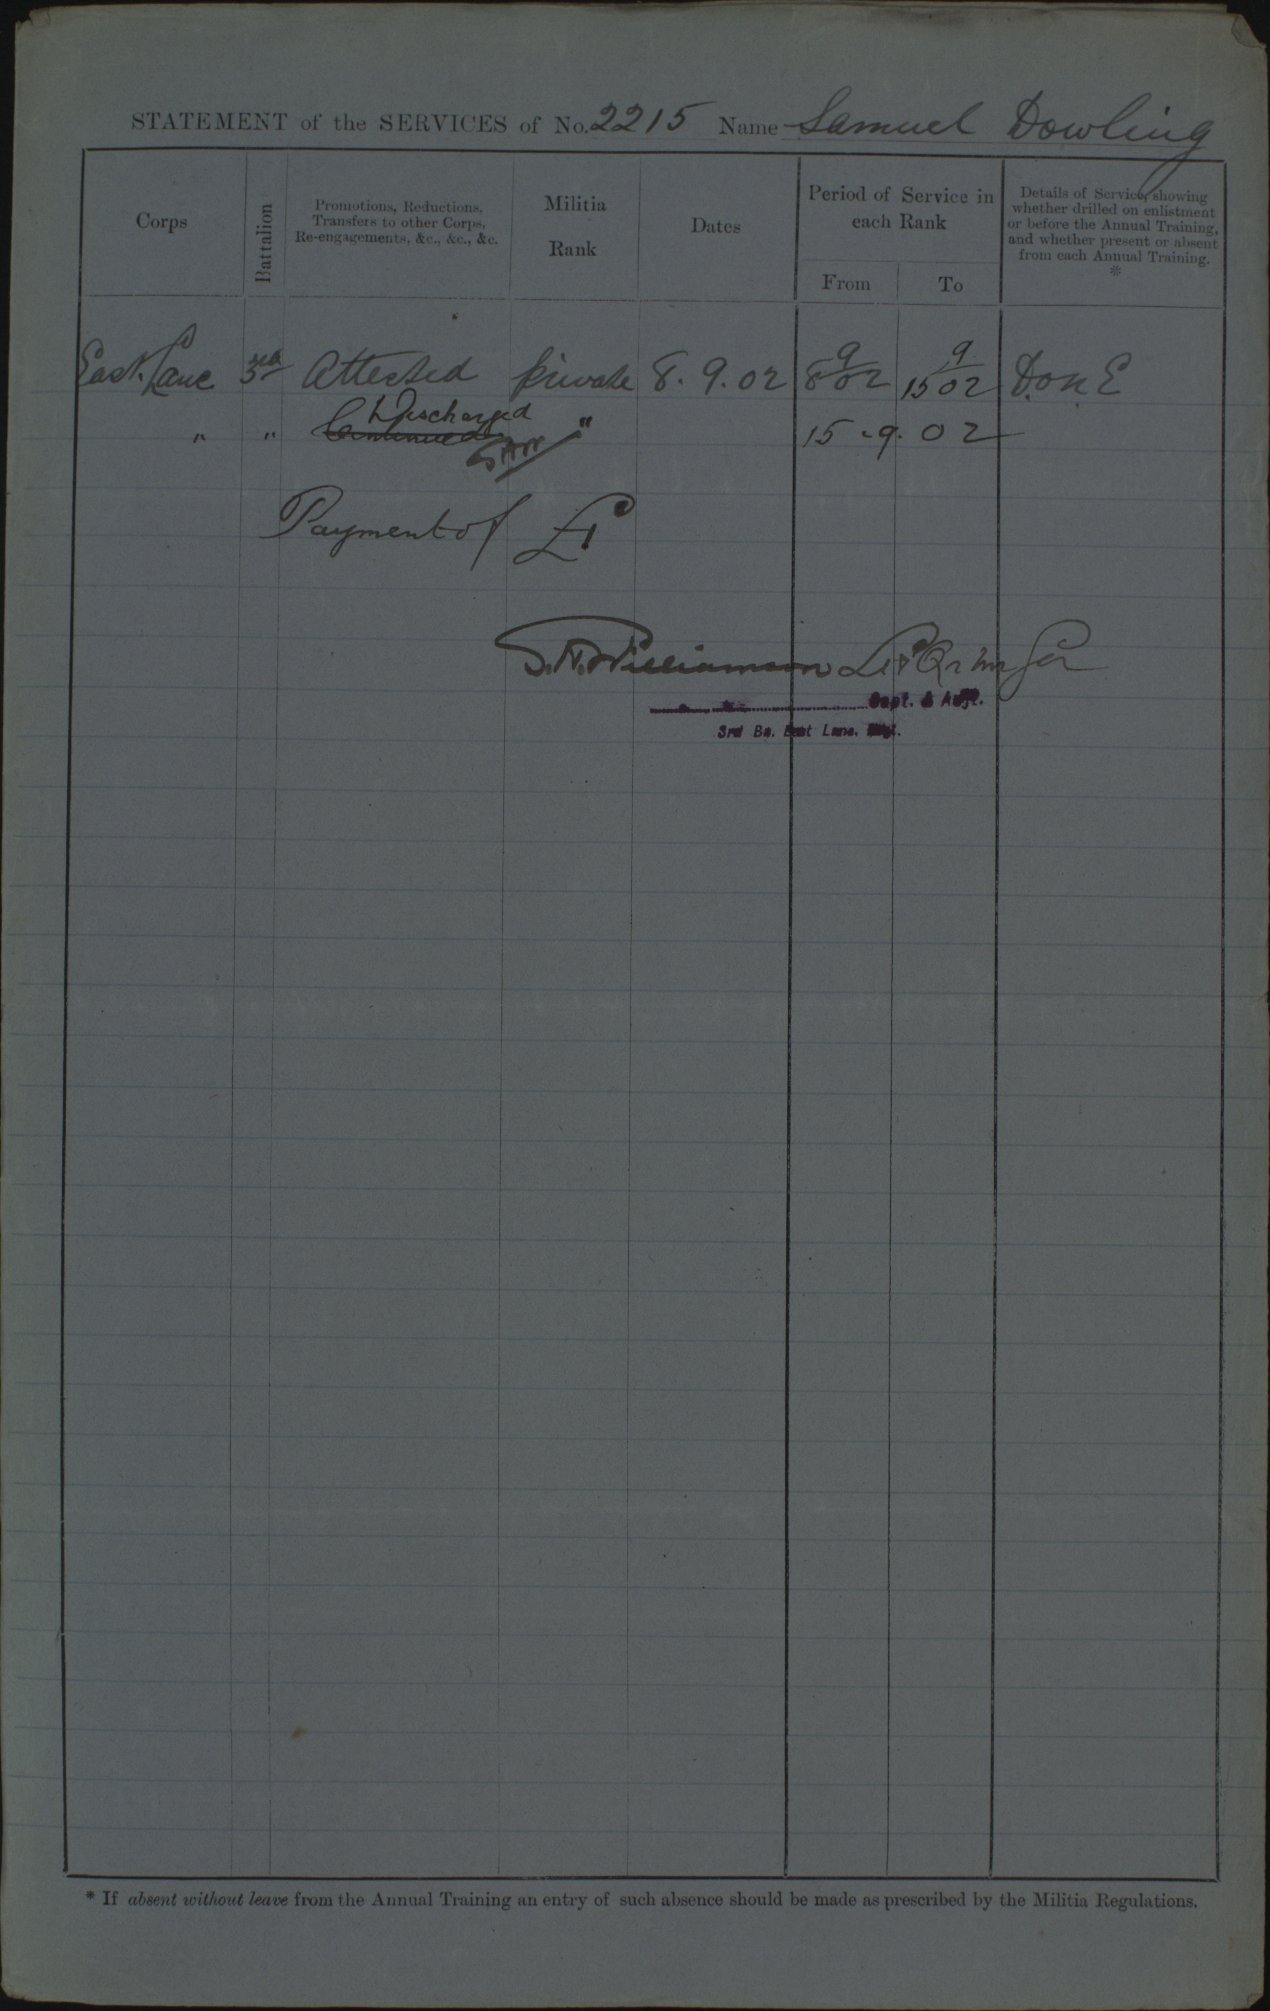 STATEMENT of the SERVICES of No. 2215 Name Samuel Dowling
Corps
Battalion
Promotions, Reductions,
Transfers to other Corps,
Re-engagements, &c., &c., &c.
Militia
Rank
Dates
Period of Service in
each Rank
From
To
Details of Service, showing
whether drilled on enlistment
or before the Annual Training,
and whether present or absent
from each Annual Training.
*
East Lanc 3rd Attested Private 8. 9. 02 8 9/02 15 9/02 D. on E
" " Continued Discharged " 15 . 9 . 02
Payment of £1
Williamson Lt & Qr Mr for
Capt. & Adjt.
3rd Bn. East Lanc. Regt.
* If absent without leave from the Annual Training an entry of such absence should be made as prescribed by the Militia Regulations.